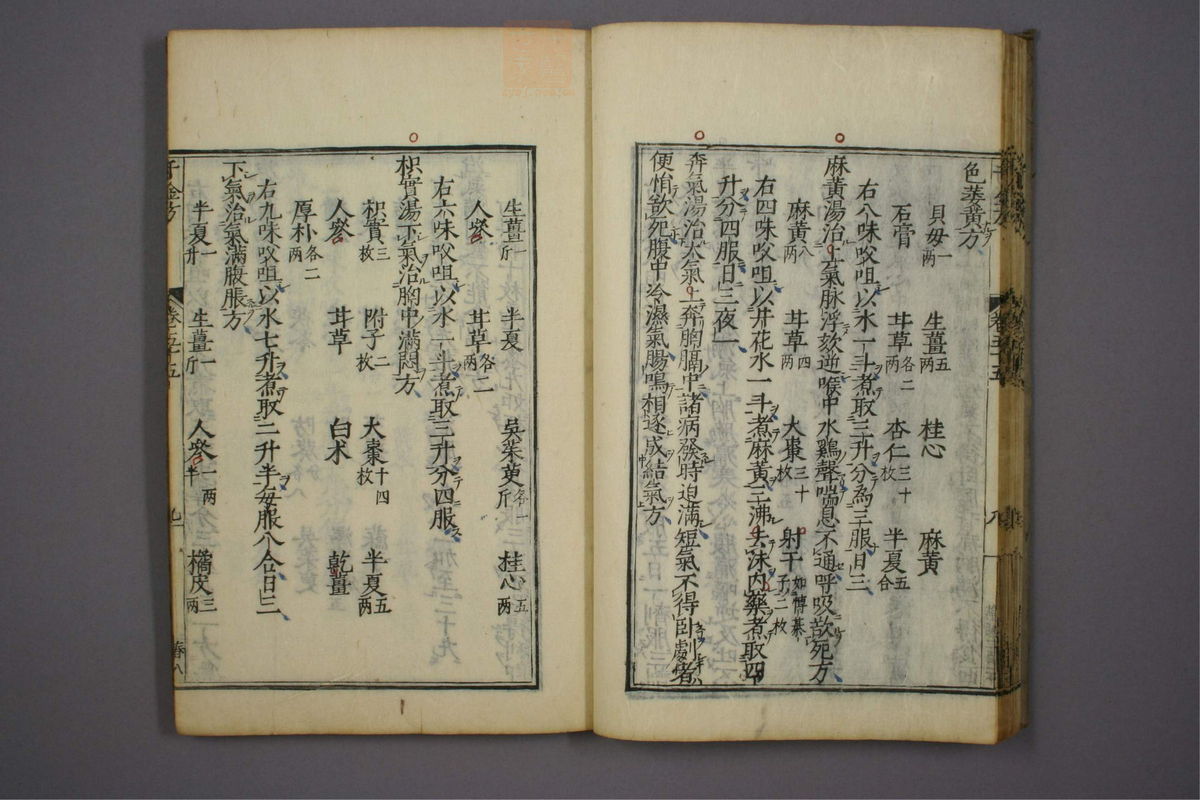 色萎黃方
貝母一兩 生薑五兩 桂心 麻黃
石膏 甘草各二兩 杏仁三十枚 半夏五合
右八味㕮咀以水一斗煮取三升分為三服日三
麻黃湯治上氣脉浮欬逆喉中水鷄聲喘息不通呼吸欲死方
麻黃八兩 甘草四兩 大棗三十枚 射干如博棊子二枚
右四味㕮咀以井花水一斗煮麻黃三沸去沫内藥煮取四
升分四服日三夜一
奔氣湯治大氣上奔胸膈中諸病發時迫滿短氣不得臥劇者
便悁欲死腹中冷濕氣腸鳴相逐成結氣方
生薑一斤 半夏 吳茱萸各一斤 桂心五兩
人參 甘草各二兩
右六味㕮咀以水一斗煮取三升分四服
枳實湯下氣治胸中滿悶方
枳實三枚 附子二枚 大棗十四枚 半夏五兩
人參 甘草 白朮 乾薑
厚朴各二兩
右九味㕮咀以水七升煮取二升半每服八合日三
下氣治氣滿腹脹方
半夏一升 生薑一斤 人參一兩半 橘皮三兩
千金方 卷五十五 九 春八